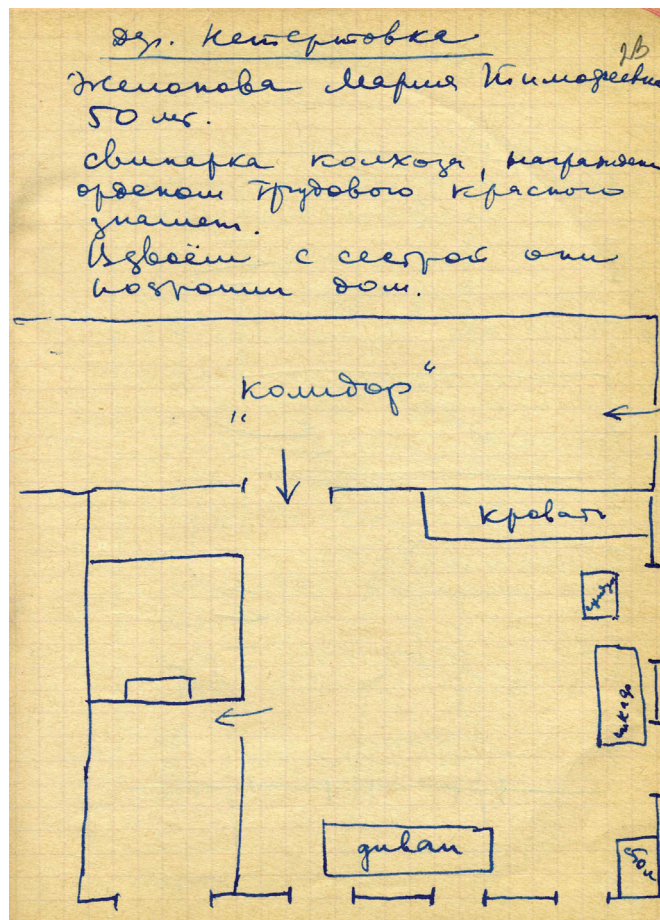 дер. Нетертовка
28
Желонова Мария Тимофеевна
50 лет.
свинарка колхоза, награжден
орденом Трудового Красного
знамен.
Вдвоём с сестрой они
построили дом.
„Колидор“
кровать
шкаф
диван
стол